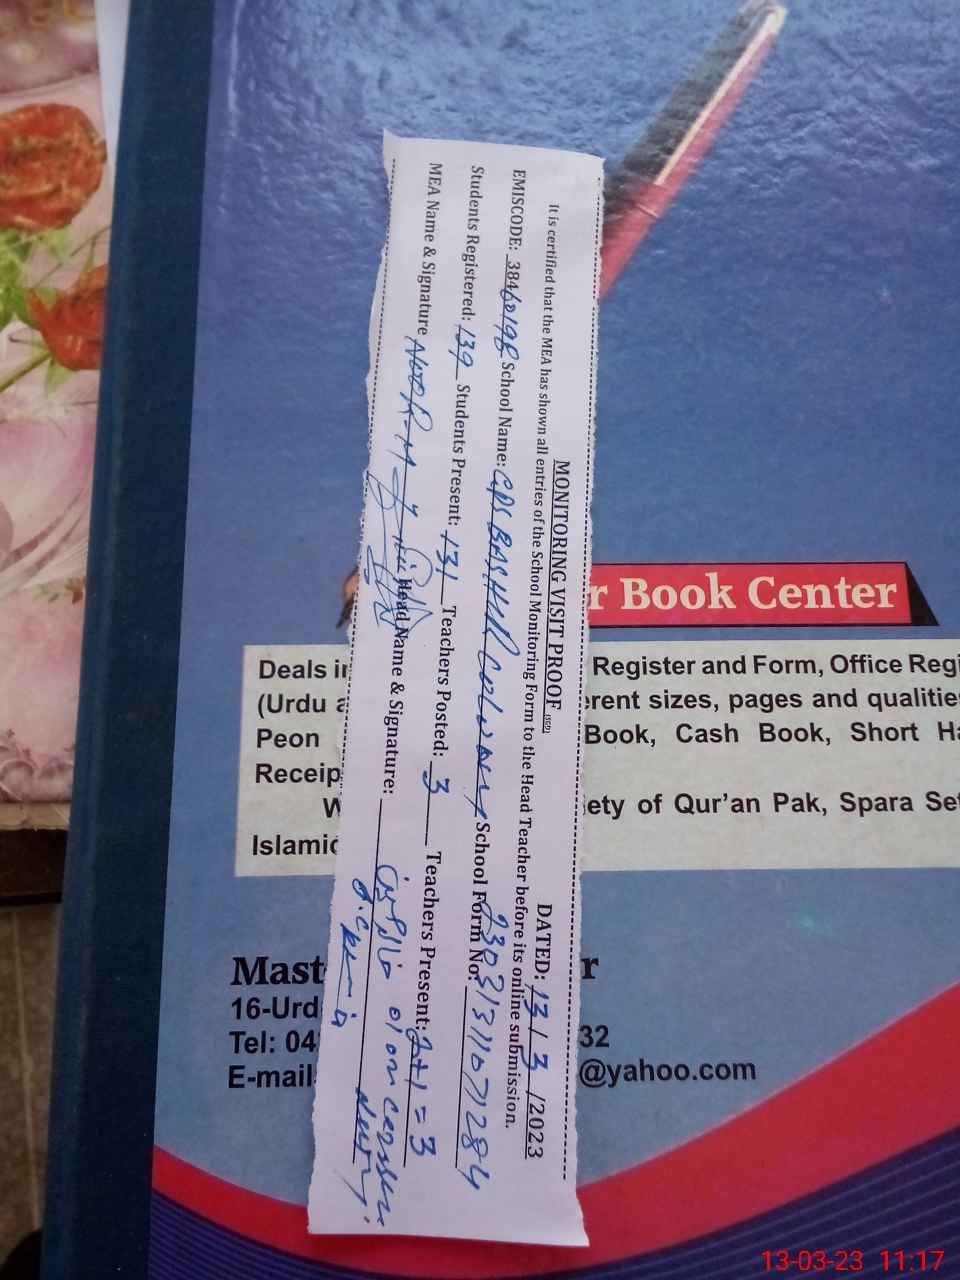 MONITORING VISIT PROOF (SED)
DATED: 13 / 3 /2023
It is certified that the MEA has shown all entries of the School Monitoring Form to the Head Teacher before its online submission.
EMISCODE: 38460198 School Name: GPS BASHIR COLONY School Form No:
Students Registered: 139 Students Present: 131 Teachers Posted: 3 Teachers Present: 2+1=3
MEA Name & Signature Head Name & Signature:
r Book Center
Deals in Register and Form, Office Regi
(Urdu a erent sizes, pages and qualitie
Peon Book, Cash Book, Short Ha
Receip
W ety of Qur'an Pak, Spara Set
Islamic
Mast r
16-Urd
Tel: 04 32
E-mail @yahoo.com
13-03-23 11:17